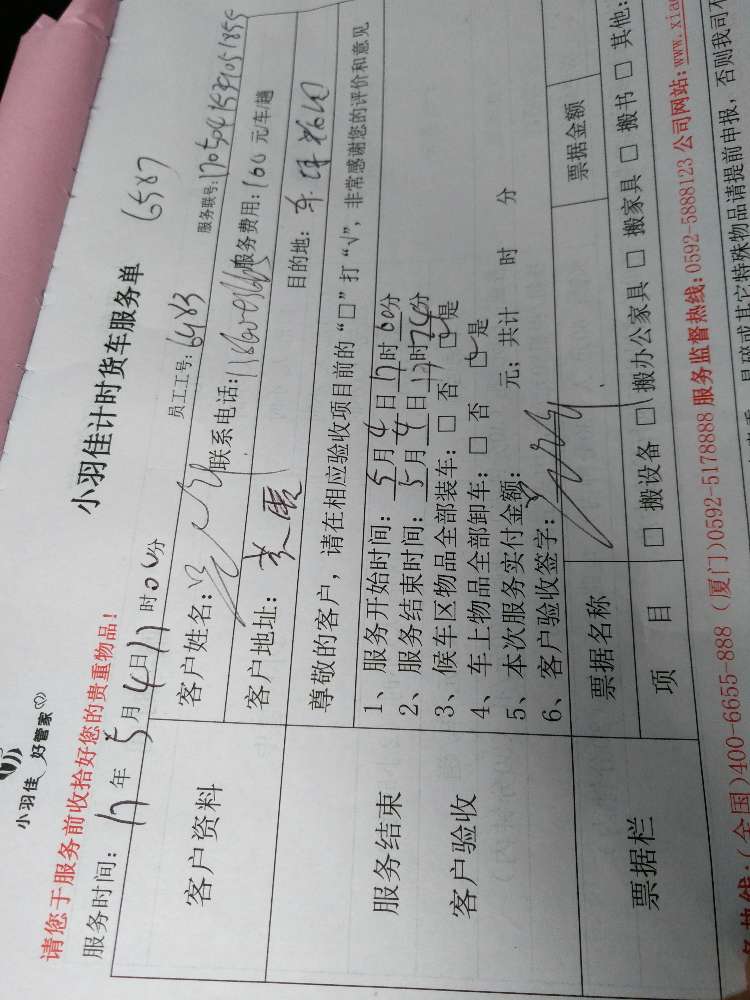 小羽佳 好管家
小羽佳计时货车服务单 6587
请您于服务前收拾好您的贵重物品!
服务时间: 17 年 5 月 4 日 17 时 00 分 员工工号: 6483 服务联号:
客户资料
客户姓名: 联系电话: 服务费用: 160 元/车/趟
客户地址: 目的地:
服务结束
客户验收
尊敬的客户,请在相应验收项目前的“□”打“√”,非常感谢您的评价和意见
1、服务开始时间: 5 月 4 日 17 时 00 分
2、服务结束时间: 5 月 4 日 17 时 分
3、候车区物品全部装车: □ 否 ☑ 是
4、车上物品全部卸车: □ 否 ☑ 是
5、本次服务实付金额: 元; 共计 时 分
6、客户验收签字:
票据栏
票据名称 票据金额
项 目 □ 搬设备 □ 搬办公家具 □ 搬家具 □ 搬书 □ 其他:
(全国)400-6655-888 (厦门)0592-5178888 服务监督热线:0592-5888123 公司网站:www.xia
易碎或其它特殊物品请提前申报,否则我司不